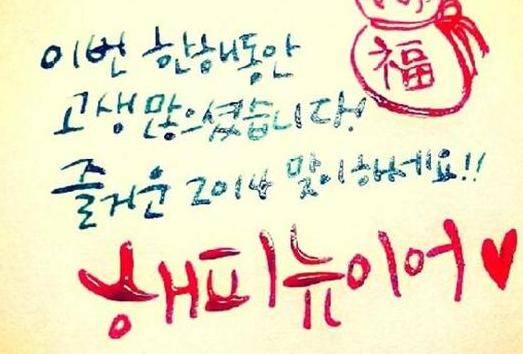 福
이번 한해동안
고생많으셨습니다!
즐거운 2014 맞이하세요!!
해피뉴이어♥